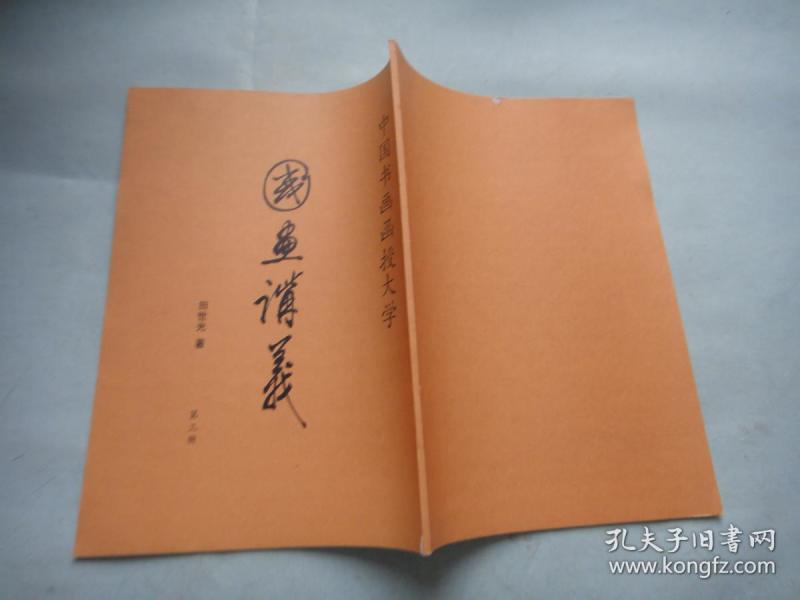 中国书画函授大学
國畫講義
田世光 著
第三册
孔夫子旧書网
www.kongfz.com